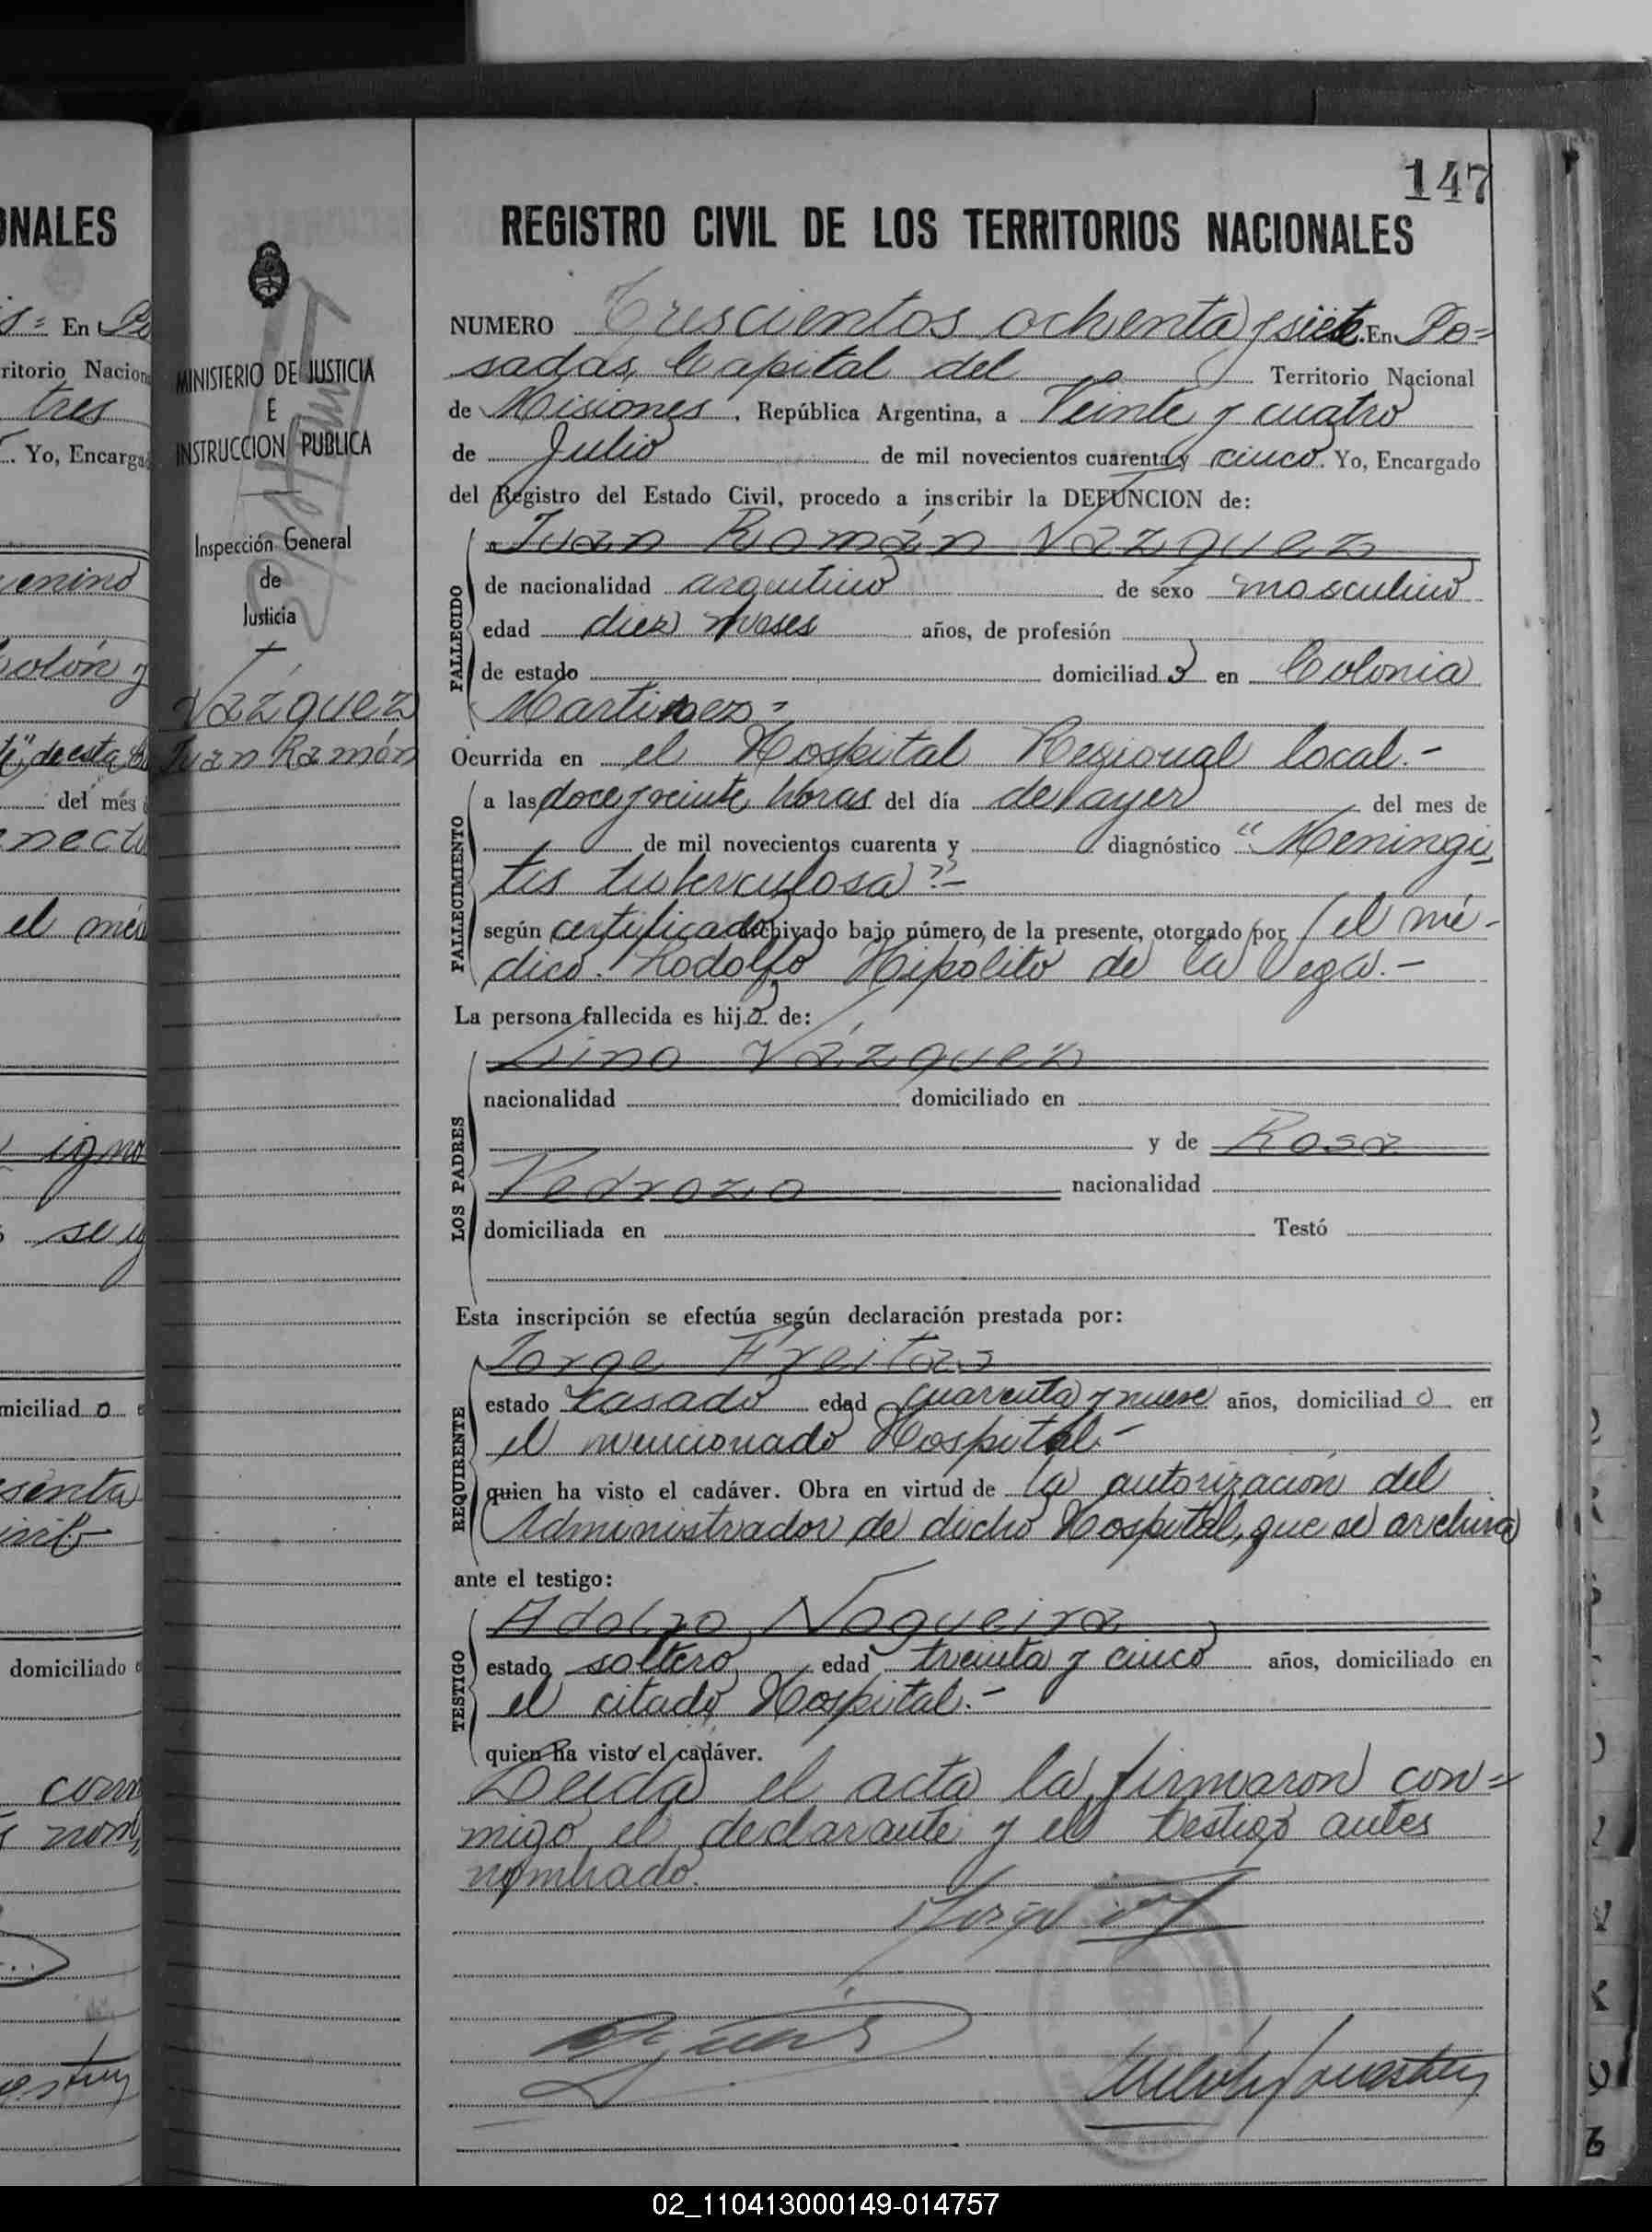 147
REGISTRO CIVIL DE LOS TERRITORIOS NACIONALES
NUMERO Trescientos ochenta y siete. En Po=
sadas, Capital del Territorio Nacional
de Misiones, República Argentina, a Veinte y cuatro
de Julio de mil novecientos cuarenta y cinco. Yo, Encargado
del Registro del Estado Civil, procedo a inscribir la DEFUNCION de:
Juan Román Vázquez
FALLECIDO
de nacionalidad argentino de sexo masculino
edad diez meses años, de profesión
de estado domiciliado en Colonia
Martinez=
Ocurrida en el Hospital Regional local.-
FALLECIMIENTO
a las doce y veinte horas del día de ayer del mes de
de mil novecientos cuarenta y diagnóstico "Meningi
tis tuberculosa"-
según certificado archivado bajo número, de la presente, otorgado por el mé-
dico. Rodolfo Hipolito de la Vega.-
La persona fallecida es hijo de:
LOS PADRES
Lino Vázquez
nacionalidad domiciliado en
y de Rosa
Pedrozo nacionalidad
domiciliada en Testó
Esta inscripción se efectúa según declaración prestada por:
REQUIRENTE
Jorge Freitas
estado casado edad cuarenta y nueve años, domiciliado en
el mencionado Hospital-
quien ha visto el cadáver. Obra en virtud de la autorización del
Administrador de dicho Hospital, que se archiva
ante el testigo:
TESTIGO
Adolfo Nogueira
estado soltero edad treinta y cinco años, domiciliado en
el citado Hospital.-
quien ha visto el cadáver.
Leida el acta la firmaron con=
migo el declarante y el testigo antes
nombrado.
MINISTERIO DE JUSTICIA
E
INSTRUCCION PUBLICA
Inspección General
de
Justicia
Vázquez
Juan Ramón
ONALES
En Po
ritorio Nacion
tres
Yo, Encarga
de esta
del mes
el méd
igno
miciliado
domiciliado
02_110413000149-014757